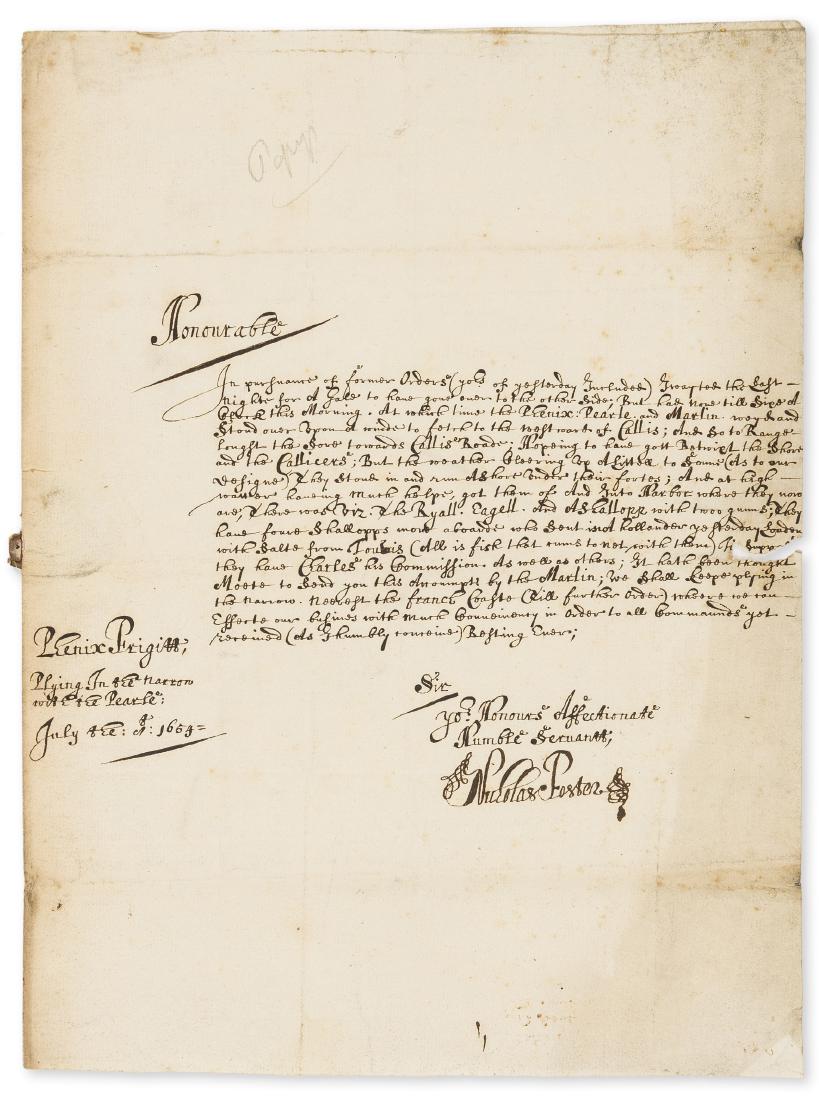 Honourable
In pursuance of former Orders (yor of yesterday Included) I wayted the Last
nights for A Gale to have gone over to the other Side; But had none till Sixe A
Clock this Morning. At which time the Phenix: Pearle, and Marlin. weyed and
Stood over Upon A winde to fetch to the westward of Callis; And So to Range
longst the Sore towards Callis Roade; Hopeing to have gott Betwixt the Shore
and the Callicers; But the weather Cleering Up A Little to Soone (As to our
Designe) They Stood in and run A Shore Under their fortes; And at high
watter haveing Much helpe, got them of And Into Harbor where they now
are; There was Viz. The Ryall Eagell. And A Shallopp with twoo guns; They
have foure Shallopps more abroade who Sent in A hollander yesterday
with Salte from (All is fish that cums to net, with them)
they have Charles his Commission. As well as others; It hath been thought
Meete to Send you this Accoumpte by the Marlin; We Shall Keepe plying in
the narrow. Neerest the french Coaste (till further Order) where we can
Effecte our busines with Much Conveniency in Order to all Commaunds yet
received (As I humbly conceive) Resting Ever;
Phenix Frigitt,
Plying In the Narrow
with the Pearle:
July the:
Sir
yor Honours Affectionate
Humble Servantt,
Nicholas Foster